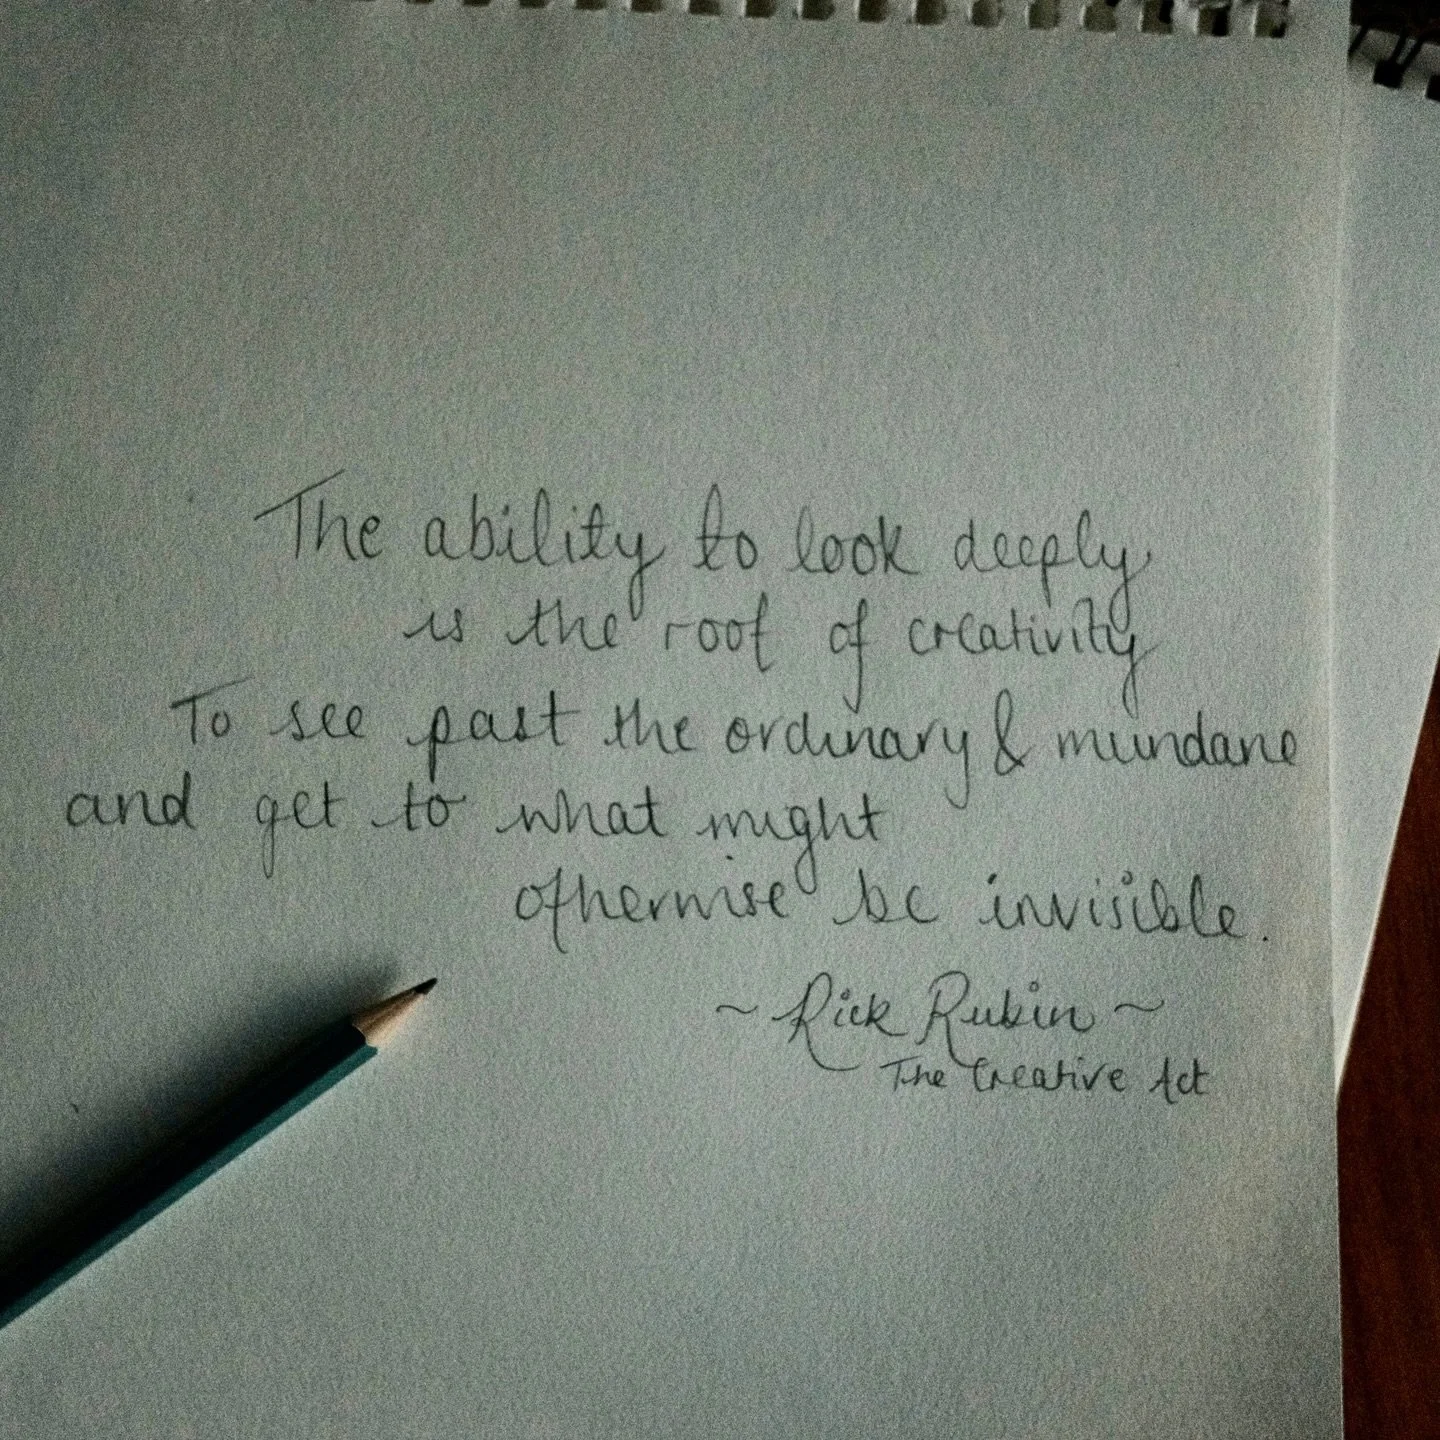 The ability to look deeply
is the root of creativity
To see past the ordinary & mundane
and get to what might
otherwise be invisible.
~ Rick Rubin ~
The Creative Act